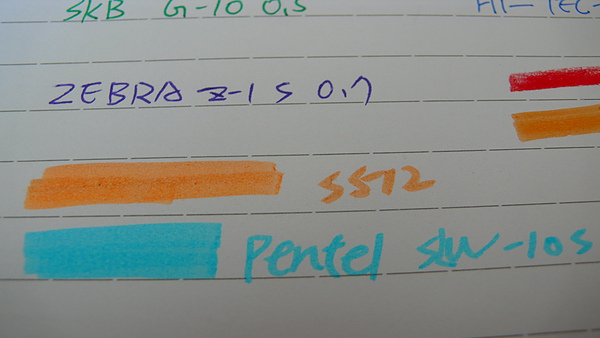 SKB G-10 0.5 HI-TEC-
ZEBRA Z-1 S 0.7
SS12
Pentel SLW-10S